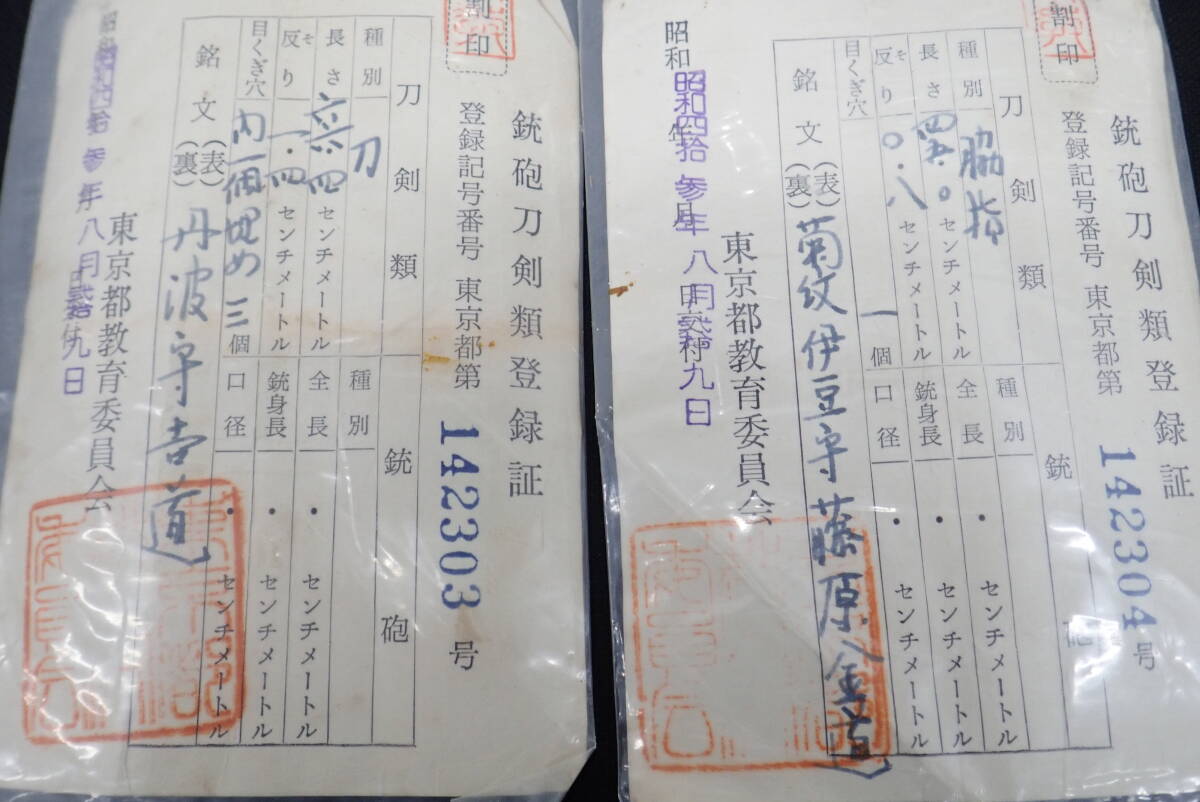 銃砲刀剣類登録証
割印
登録記号番号 東京都第 142303 号
刀剣類
種別 刀
長さ 六六.四 センチメートル
反り そ 一.四 センチメートル
目くぎ穴 内一個埋め 三個
銘文 (表) 丹波守吉道
(裏)
銃砲
種別
全長 ・ センチメートル
銃身長 ・ センチメートル
口径 ・ センチメートル
昭和四拾参年八月弐拾九日
東京都教育委員会
銃砲刀剣類登録証
割印
登録記号番号 東京都第 142304 号
刀剣類
種別 脇指
長さ センチメートル
反り そ 〇.八 センチメートル
目くぎ穴 一個
銘文 (表) 菊紋伊豆守藤原金道
(裏)
銃砲
種別
全長 ・ センチメートル
銃身長 ・ センチメートル
口径 ・ センチメートル
昭和 年 月
昭和四拾参年八月弐拾九日
東京都教育委員会